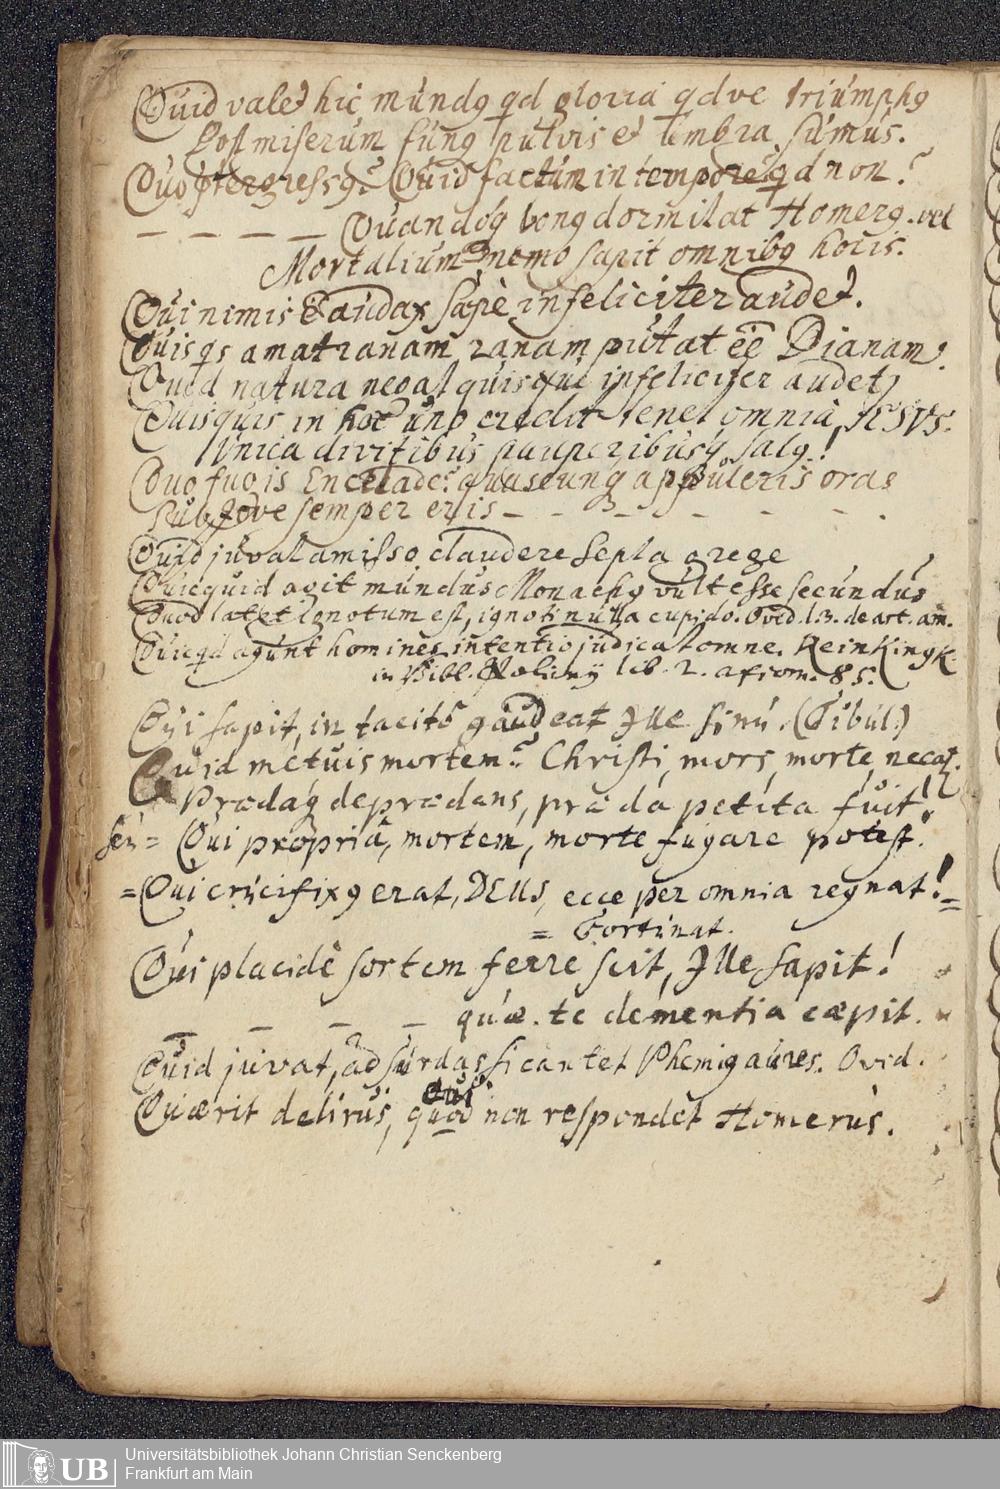 Quid valet hic mundg qd gloria qdve triumphg
Post miserum fung pulvis et umbra sumus.
Quo ptergressg? Quid factum in tempore qd non?
_ _ _ _ Quandóg bong dormitat Homerg. vel
Mortalium nemo sapit omnibg horis.
Qui nimis ē audax sæpè infeliciter audet.
Quisqs amat ranam ranam putat eē Dianam.
Quod natura negat quisqui infeliciter audet
Quisquis in hoc uno credit tenet omnia, IESVS.
Unica divitibus pauperibusq́ salg.!
Quo fugis Encelade? quascunq́ appuleris oras
Sub Jove semper eris _ _ _ _ _ _ .
Quid juvat amisso claudere septa grege
Quicquid agit mundus Monachg vult esse secundus
Quod latet ignotum est, ignoti nulla cupido. Ovid. l.3. de art. am.
Quicqd agunt homines intentio judicat omne. Reinkingk.
in Bibl. Policey lib. 2. axiom. 85.
Qui sapit, in tacitô gaudeat Ille sinu. (Tibul.)
Quid metuis mortem? Christi, mors, morte, necat.
Prædáq́ deprædans, præda petita fuit!
seu = Qui propriâ, mortem, morte fugare potest.
= Qui crucifixg erat, DEUS, ecce per omnia regnat! =
= Fortunat.
Qui placidè sortem ferre scit, Ille sapit!
_ _ _ _ quæ. te dementia cæpit.
Quid juvat, ad surdas si cantet Phemig aures. Ovid.
cui
Quærit delirus, quod non respondet Homerus.
UB
Universitätsbibliothek Johann Christian Senckenberg
Frankfurt am Main